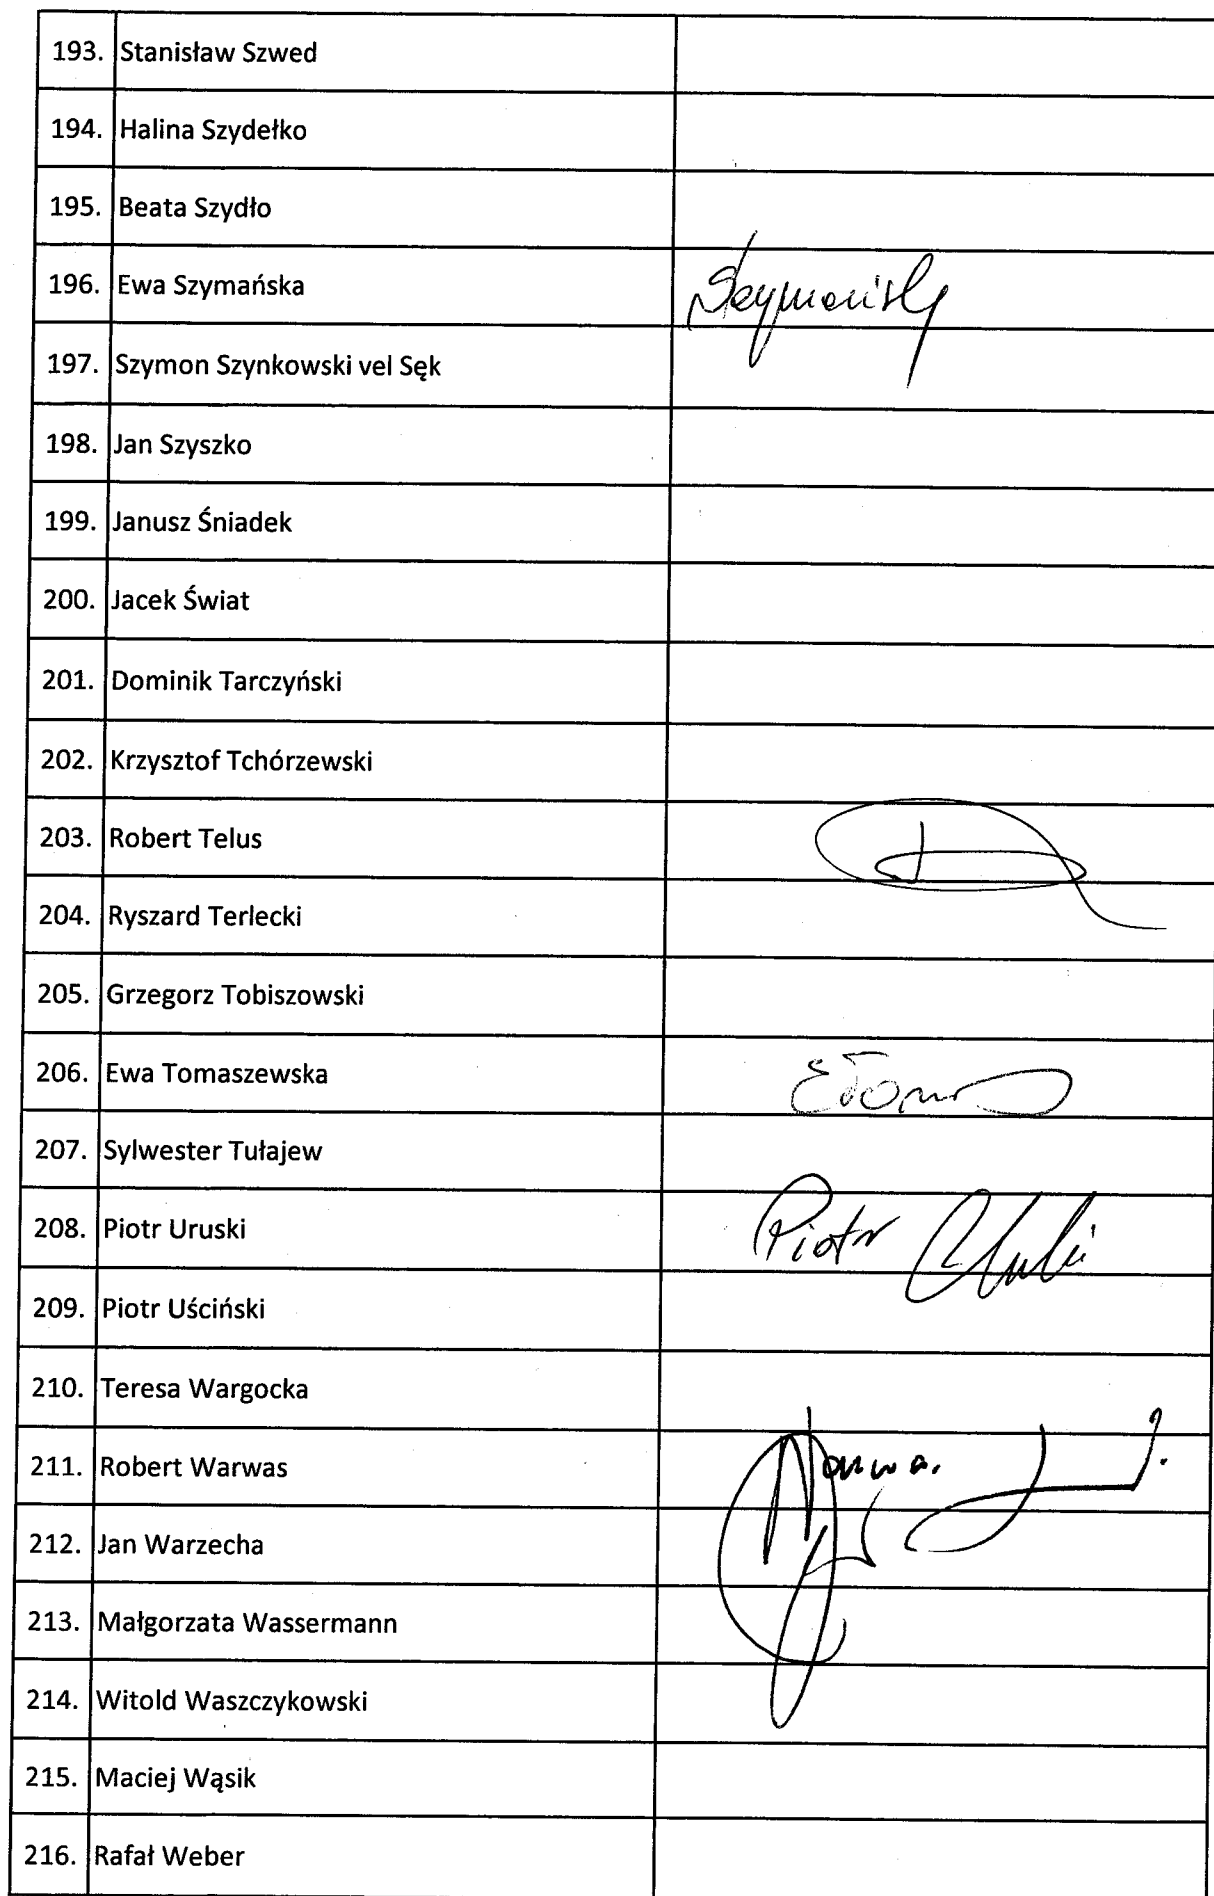 193. Stanisław Szwed
194. Halina Szydełko
195. Beata Szydło
196. Ewa Szymańska Szymańska
197. Szymon Szynkowski vel Sęk
198. Jan Szyszko
199. Janusz Śniadek
200. Jacek Świat
201. Dominik Tarczyński
202. Krzysztof Tchórzewski
203. Robert Telus
204. Ryszard Terlecki
205. Grzegorz Tobiszowski
206. Ewa Tomaszewska
207. Sylwester Tułajew
208. Piotr Uruski Piotr
209. Piotr Uściński
210. Teresa Wargocka
211. Robert Warwas
212. Jan Warzecha
213. Małgorzata Wassermann
214. Witold Waszczykowski
215. Maciej Wąsik
216. Rafał Weber